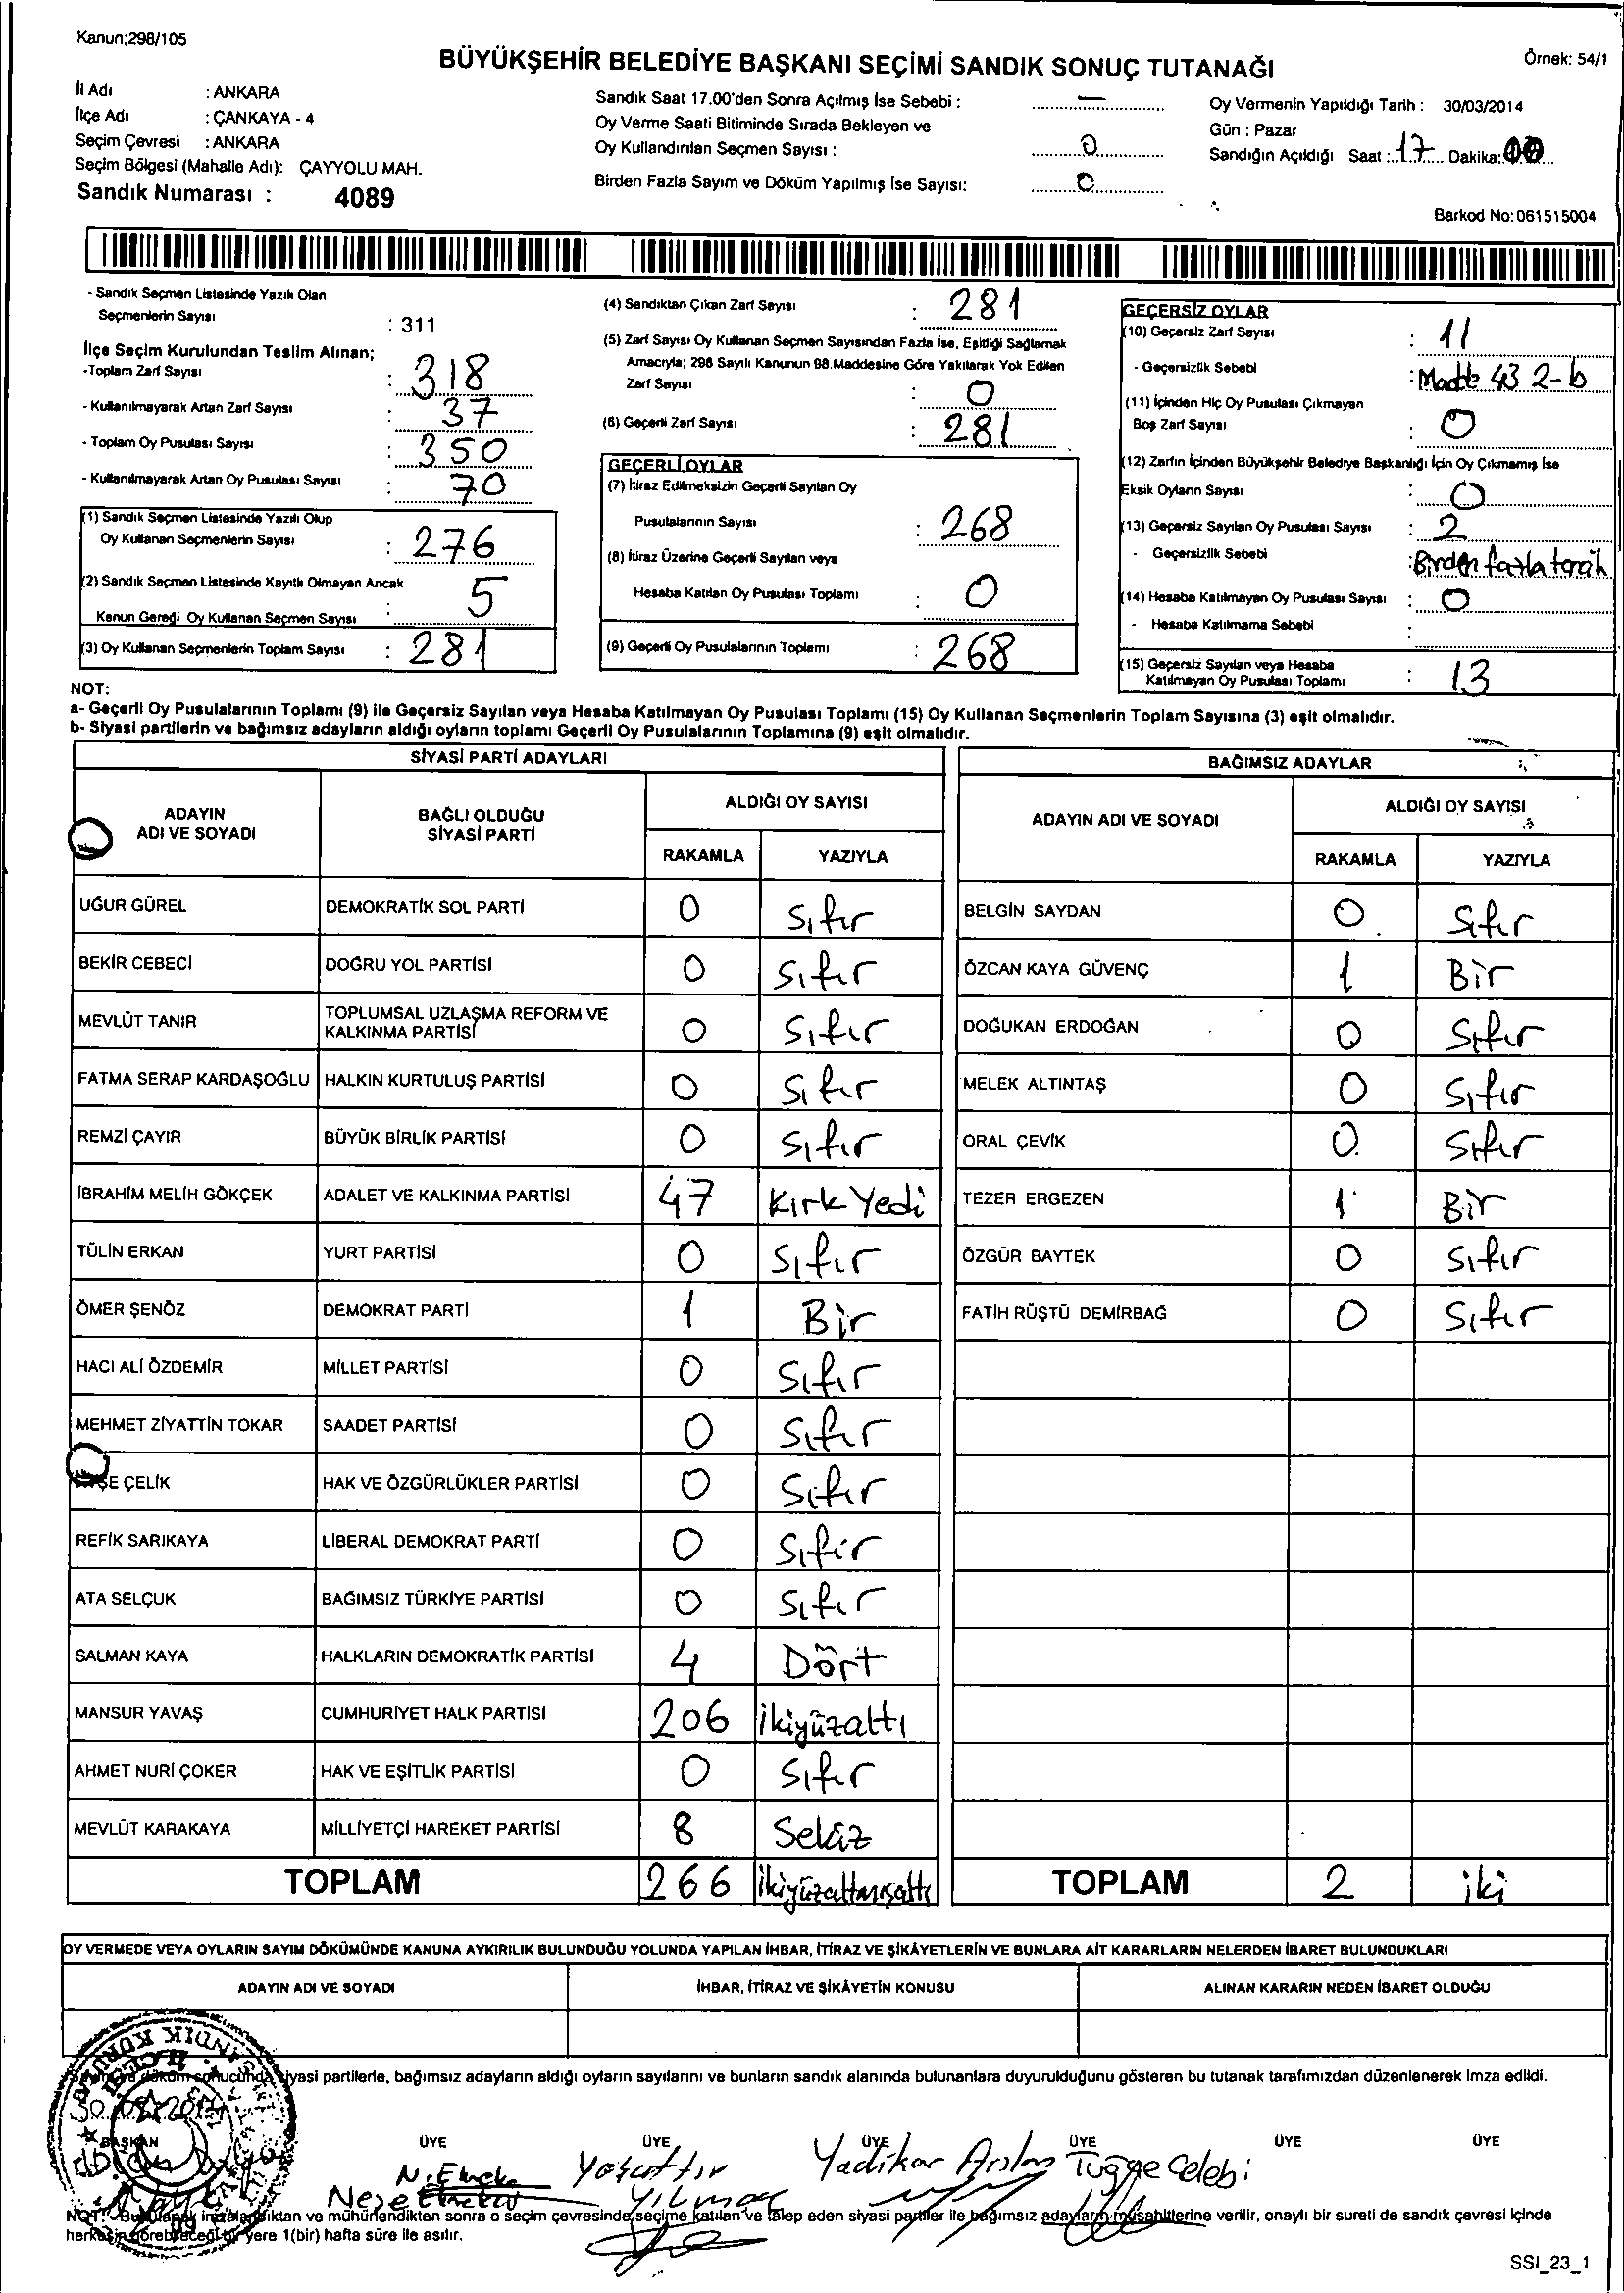 Kanun;298/105
BÜYÜKŞEHİR BELEDİYE BAŞKANI SEÇİMİ SANDIK SONUÇ TUTANAĞI
Örnek: 54/1
İl Adı : ANKARA
İlçe Adı : ÇANKAYA - 4
Seçim Çevresi : ANKARA
Seçim Bölgesi (Mahalle Adı): ÇAYYOLU MAH.
Sandık Numarası : 4089
Sandık Saat 17.00'den Sonra Açılmış İse Sebebi : —
Oy Verme Saati Bitiminde Sırada Bekleyen ve
Oy Kullandırılan Seçmen Sayısı : 0
Birden Fazla Sayım ve Döküm Yapılmış İse Sayısı: 0
Oy Vermenin Yapıldığı Tarih : 30/03/2014
Gün : Pazar
Sandığın Açıldığı Saat : 17 Dakika: 00
Barkod No: 061515004
- Sandık Seçmen Listesinde Yazılı Olan
Seçmenlerin Sayısı : 311
İlçe Seçim Kurulundan Teslim Alınan;
-Toplam Zarf Sayısı : 318
- Kullanılmayarak Artan Zarf Sayısı : 37
- Toplam Oy Pusulası Sayısı : 350
- Kullanılmayarak Artan Oy Pusulası Sayısı : 70
(1) Sandık Seçmen Listesinde Yazılı Olup
Oy Kullanan Seçmenlerin Sayısı : 276
(2) Sandık Seçmen Listesinde Kayıtlı Olmayan Ancak
Kanun Gereği Oy Kullanan Seçmen Sayısı : 5
(3) Oy Kullanan Seçmenlerin Toplam Sayısı : 281
(4) Sandıktan Çıkan Zarf Sayısı : 281
(5) Zarf Sayısı Oy Kullanan Seçmen Sayısından Fazla İse, Eşitliği Sağlamak
Amacıyla; 298 Sayılı Kanunun 98.Maddesine Göre Yakılarak Yok Edilen
Zarf Sayısı : 0
(6) Geçerli Zarf Sayısı : 281
GEÇERLİ OYLAR
(7) İtiraz Edilmeksizin Geçerli Sayılan Oy
Pusulalarının Sayısı : 268
(8) İtiraz Üzerine Geçerli Sayılan veya
Hesaba Katılan Oy Pusulası Toplamı : 0
(9) Geçerli Oy Pusulalarının Toplamı : 268
GEÇERSİZ OYLAR
(10) Geçersiz Zarf Sayısı : 11
- Geçersizlik Sebebi : Madde 43 2-b
(11) İçinden Hiç Oy Pusulası Çıkmayan
Boş Zarf Sayısı : 0
(12) Zarfın İçinden Büyükşehir Belediye Başkanlığı İçin Oy Çıkmamış İse
Eksik Oyların Sayısı : 0
(13) Geçersiz Sayılan Oy Pusulası Sayısı : 2
- Geçersizlik Sebebi : Birden fazla tercih
(14) Hesaba Katılmayan Oy Pusulası Sayısı : 0
- Hesaba Katılmama Sebebi :
(15) Geçersiz Sayılan veya Hesaba
Katılmayan Oy Pusulası Toplamı : 13
NOT:
a- Geçerli Oy Pusulalarının Toplamı (9) ile Geçersiz Sayılan veya Hesaba Katılmayan Oy Pusulası Toplamı (15) Oy Kullanan Seçmenlerin Toplam Sayısına (3) eşit olmalıdır.
b- Siyasi partilerin ve bağımsız adayların aldığı oyların toplamı Geçerli Oy Pusulalarının Toplamına (9) eşit olmalıdır.
SİYASİ PARTİ ADAYLARI
ADAYIN ADI VE SOYADI BAĞLI OLDUĞU SİYASİ PARTİ ALDIĞI OY SAYISI
RAKAMLA YAZIYLA
UĞUR GÜREL DEMOKRATİK SOL PARTİ 0 Sıfır
BEKİR CEBECİ DOĞRU YOL PARTİSİ 0 Sıfır
MEVLÜT TANIR TOPLUMSAL UZLAŞMA REFORM VE KALKINMA PARTİSİ 0 Sıfır
FATMA SERAP KARDAŞOĞLU HALKIN KURTULUŞ PARTİSİ 0 Sıfır
REMZİ ÇAYIR BÜYÜK BİRLİK PARTİSİ 0 Sıfır
İBRAHİM MELİH GÖKÇEK ADALET VE KALKINMA PARTİSİ 47 Kırk Yedi
TÜLİN ERKAN YURT PARTİSİ 0 Sıfır
ÖMER ŞENÖZ DEMOKRAT PARTİ 1 Bir
HACI ALİ ÖZDEMİR MİLLET PARTİSİ 0 Sıfır
MEHMET ZİYATTİN TOKAR SAADET PARTİSİ 0 Sıfır
ÇELİK HAK VE ÖZGÜRLÜKLER PARTİSİ 0 Sıfır
REFİK SARIKAYA LİBERAL DEMOKRAT PARTİ 0 Sıfır
ATA SELÇUK BAĞIMSIZ TÜRKİYE PARTİSİ 0 Sıfır
SALMAN KAYA HALKLARIN DEMOKRATİK PARTİSİ 4 Dört
MANSUR YAVAŞ CUMHURİYET HALK PARTİSİ 206 ikiyüzaltı
AHMET NURİ ÇOKER HAK VE EŞİTLİK PARTİSİ 0 Sıfır
MEVLÜT KARAKAYA MİLLİYETÇİ HAREKET PARTİSİ 8 Sekiz
TOPLAM 266 ikiyüzaltmışaltı
BAĞIMSIZ ADAYLAR
ADAYIN ADI VE SOYADI ALDIĞI OY SAYISI
RAKAMLA YAZIYLA
BELGİN SAYDAN 0 Sıfır
ÖZCAN KAYA GÜVENÇ 1 Bir
DOĞUKAN ERDOĞAN 0 Sıfır
MELEK ALTINTAŞ 0 Sıfır
ORAL ÇEVİK 0 Sıfır
TEZER ERGEZEN 1 Bir
ÖZGÜR BAYTEK 0 Sıfır
FATİH RÜŞTÜ DEMİRBAĞ 0 Sıfır
TOPLAM 2 iki
OY VERMEDE VEYA OYLARIN SAYIM DÖKÜMÜNDE KANUNA AYKIRILIK BULUNDUĞU YOLUNDA YAPILAN İHBAR, İTİRAZ VE ŞİKÂYETLERİN VE BUNLARA AİT KARARLARIN NELERDEN İBARET BULUNDUKLARI
ADAYIN ADI VE SOYADI İHBAR, İTİRAZ VE ŞİKÂYETİN KONUSU ALINAN KARARIN NEDEN İBARET OLDUĞU
siyasi partilerle, bağımsız adayların aldığı oyların sayılarını ve bunların sandık alanında bulunanlara duyurulduğunu gösteren bu tutanak tarafımızdan düzenlenerek imza edildi.
BAŞKAN ÜYE ÜYE ÜYE ÜYE ÜYE ÜYE
Neşe Yaşattır Yılmaz Yadikar Arslan Tuğçe Çelebi
NOT: Bu tutanak imzalandıktan ve mühürlendikten sonra o seçim çevresinde seçime katılan ve talep eden siyasi partiler ile bağımsız adayların müşahitlerine verilir, onaylı bir sureti de sandık çevresi içinde
herkesin görebileceği bir yere 1(bir) hafta süre ile asılır.
SSI_23_1